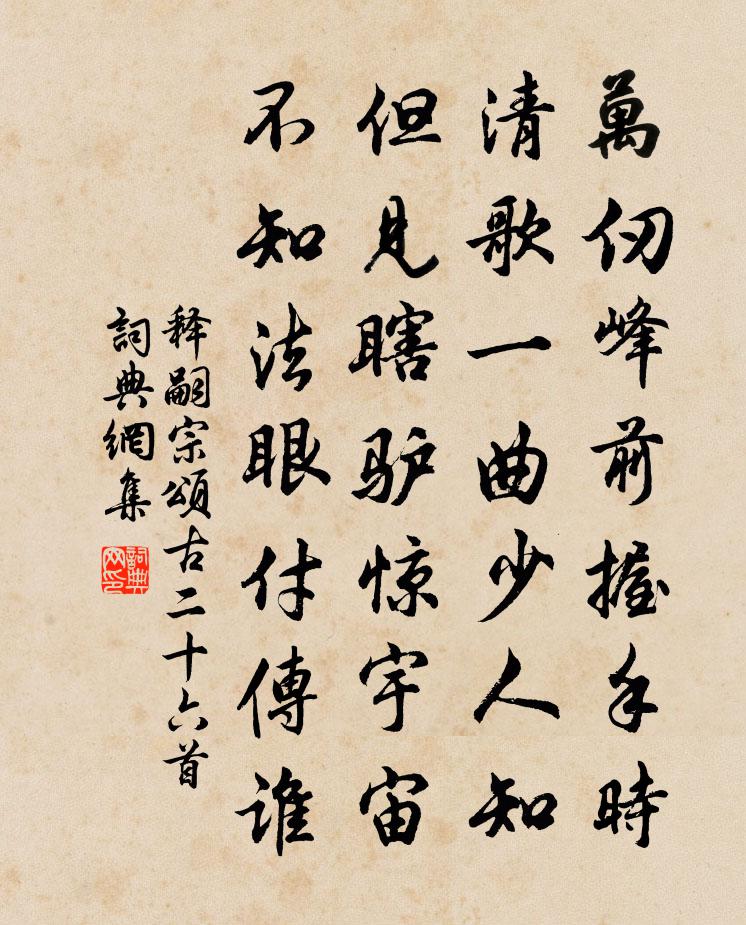 萬仞峰前握手時
清歌一曲少人知
但見瞎驴惊宇宙
不知法眼付傳谁
释嗣宗頌古二十六首
詞典網集
詞典網印